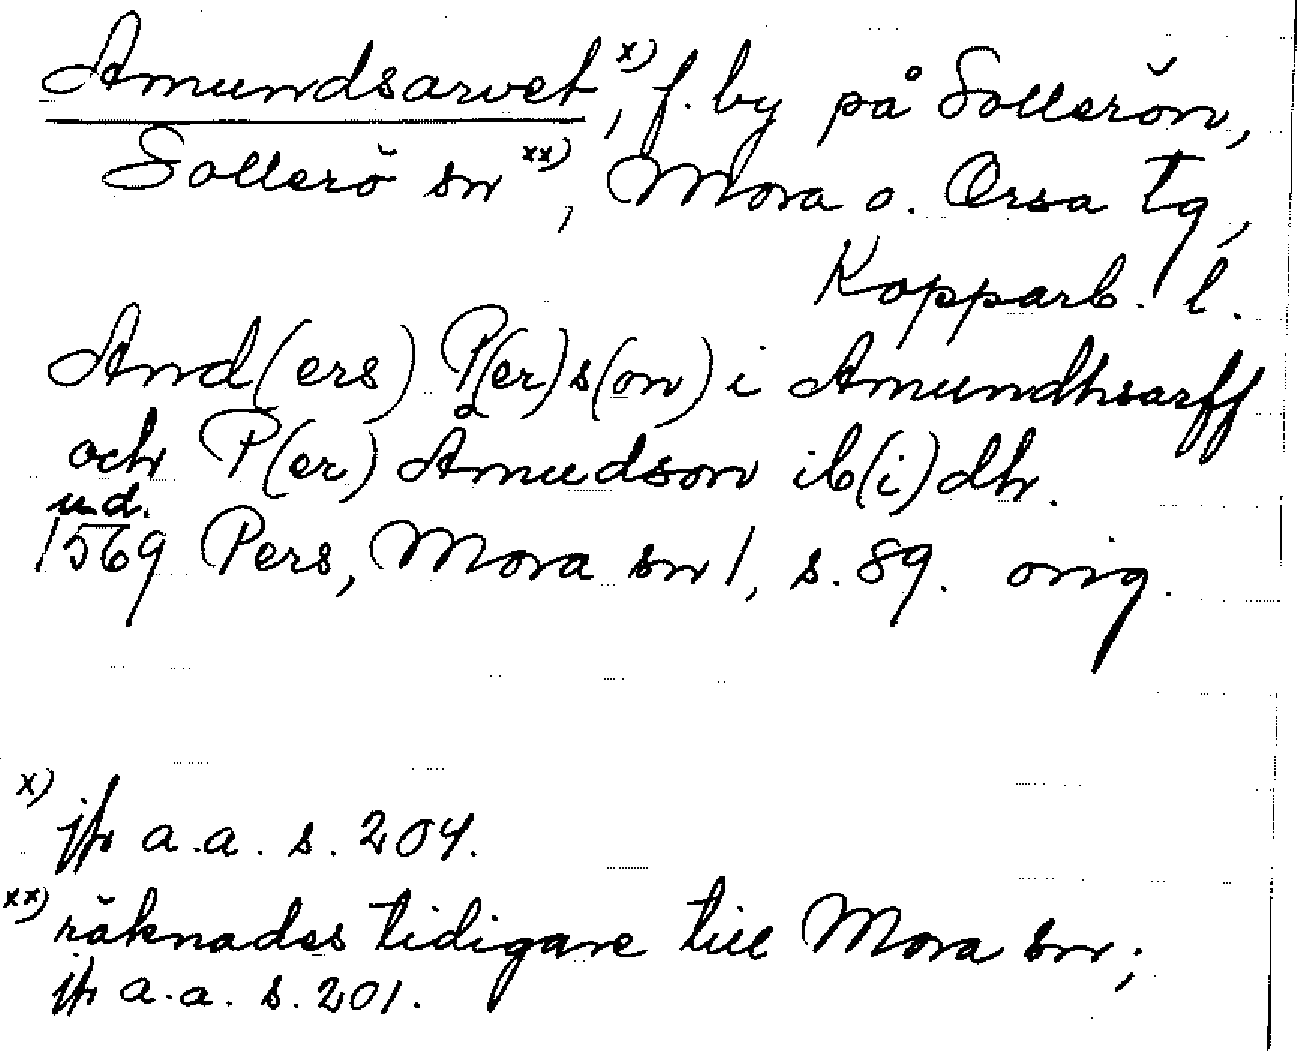 Amundsarvet x), f. by på Sollerön,
Sollerö sn xx), Mora o. Orsa tg,
Kopparb. l.
And(ers) P(er)s(on) i Amundhsarff
och P(er) Åmudson ib(i)dh.
u.d.
1569 Pers, Mora sn 1, s. 89. orig.
x) jfr a.a. s. 204.
xx) räknades tidigare till Mora sn;
jfr a.a. s. 201.